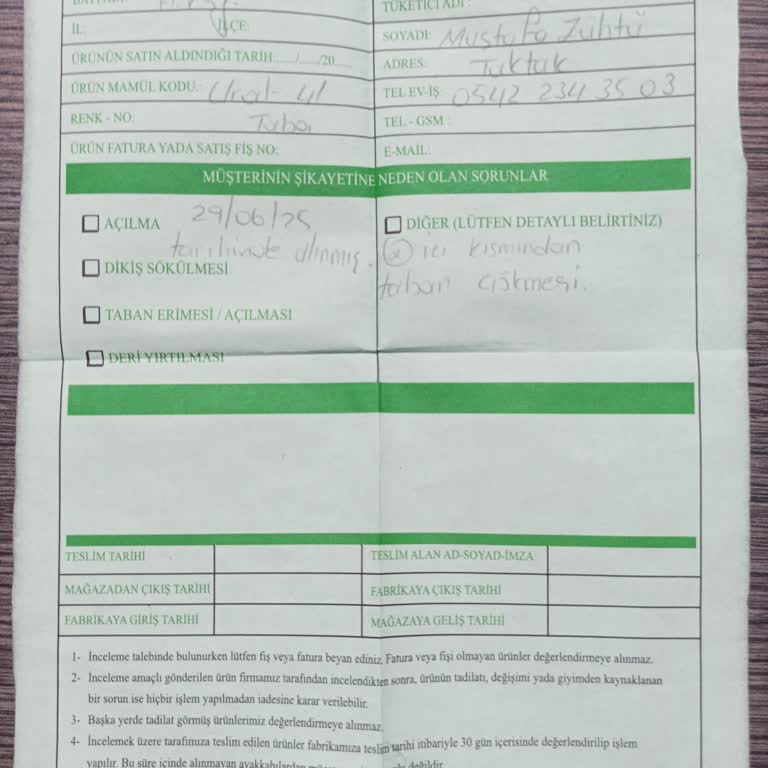 TÜKETİCİ ADI :
İL: İLÇE:
SOYADI: Mustafa Zühtü
ÜRÜNÜN SATIN ALDINDIĞI TARİH:....../....../20......
ADRES: Tuktuk
ÜRÜN MAMÜL KODU:
TEL EV-İŞ 0542 234 35 03
RENK - NO: Taba
TEL - GSM :
ÜRÜN FATURA YADA SATIŞ FİŞ NO:
E-MAİL:
MÜŞTERİNİN ŞİKAYETİNE NEDEN OLAN SORUNLAR
AÇILMA 29/06/25
tarihinde alınmış.
DİKİŞ SÖKÜLMESİ
TABAN ERİMESİ / AÇILMASI
DERİ YIRTILMASI
DİĞER (LÜTFEN DETAYLI BELİRTİNİZ)
x içi kısmından
taban çökmesi.
TESLİM TARİHİ
TESLİM ALAN AD-SOYAD-İMZA
MAĞAZADAN ÇIKIŞ TARİHİ
FABRİKAYA ÇIKIŞ TARİHİ
FABRİKAYA GİRİŞ TARİHİ
MAĞAZAYA GELİŞ TARİHİ
1- İnceleme talebinde bulunurken lütfen fiş veya fatura beyan ediniz. Fatura veya fişi olmayan ürünler değerlendirmeye alınmaz.
2- İnceleme amaçlı gönderilen ürün firmamız tarafından incelendikten sonra, ürünün tadilatı, değişimi yada giyimden kaynaklanan
bir sorun ise hiçbir işlem yapılmadan iadesine karar verilebilir.
3- Başka yerde tadilat görmüş ürünlerimiz değerlendirmeye alınmaz.
4- İncelemek üzere tarafımıza teslim edilen ürünler fabrikamıza teslim tarihi itibariyle 30 gün içerisinde değerlendirilip işlem
yapılır. Bu süre içinde alınmayan ayakkabılardan